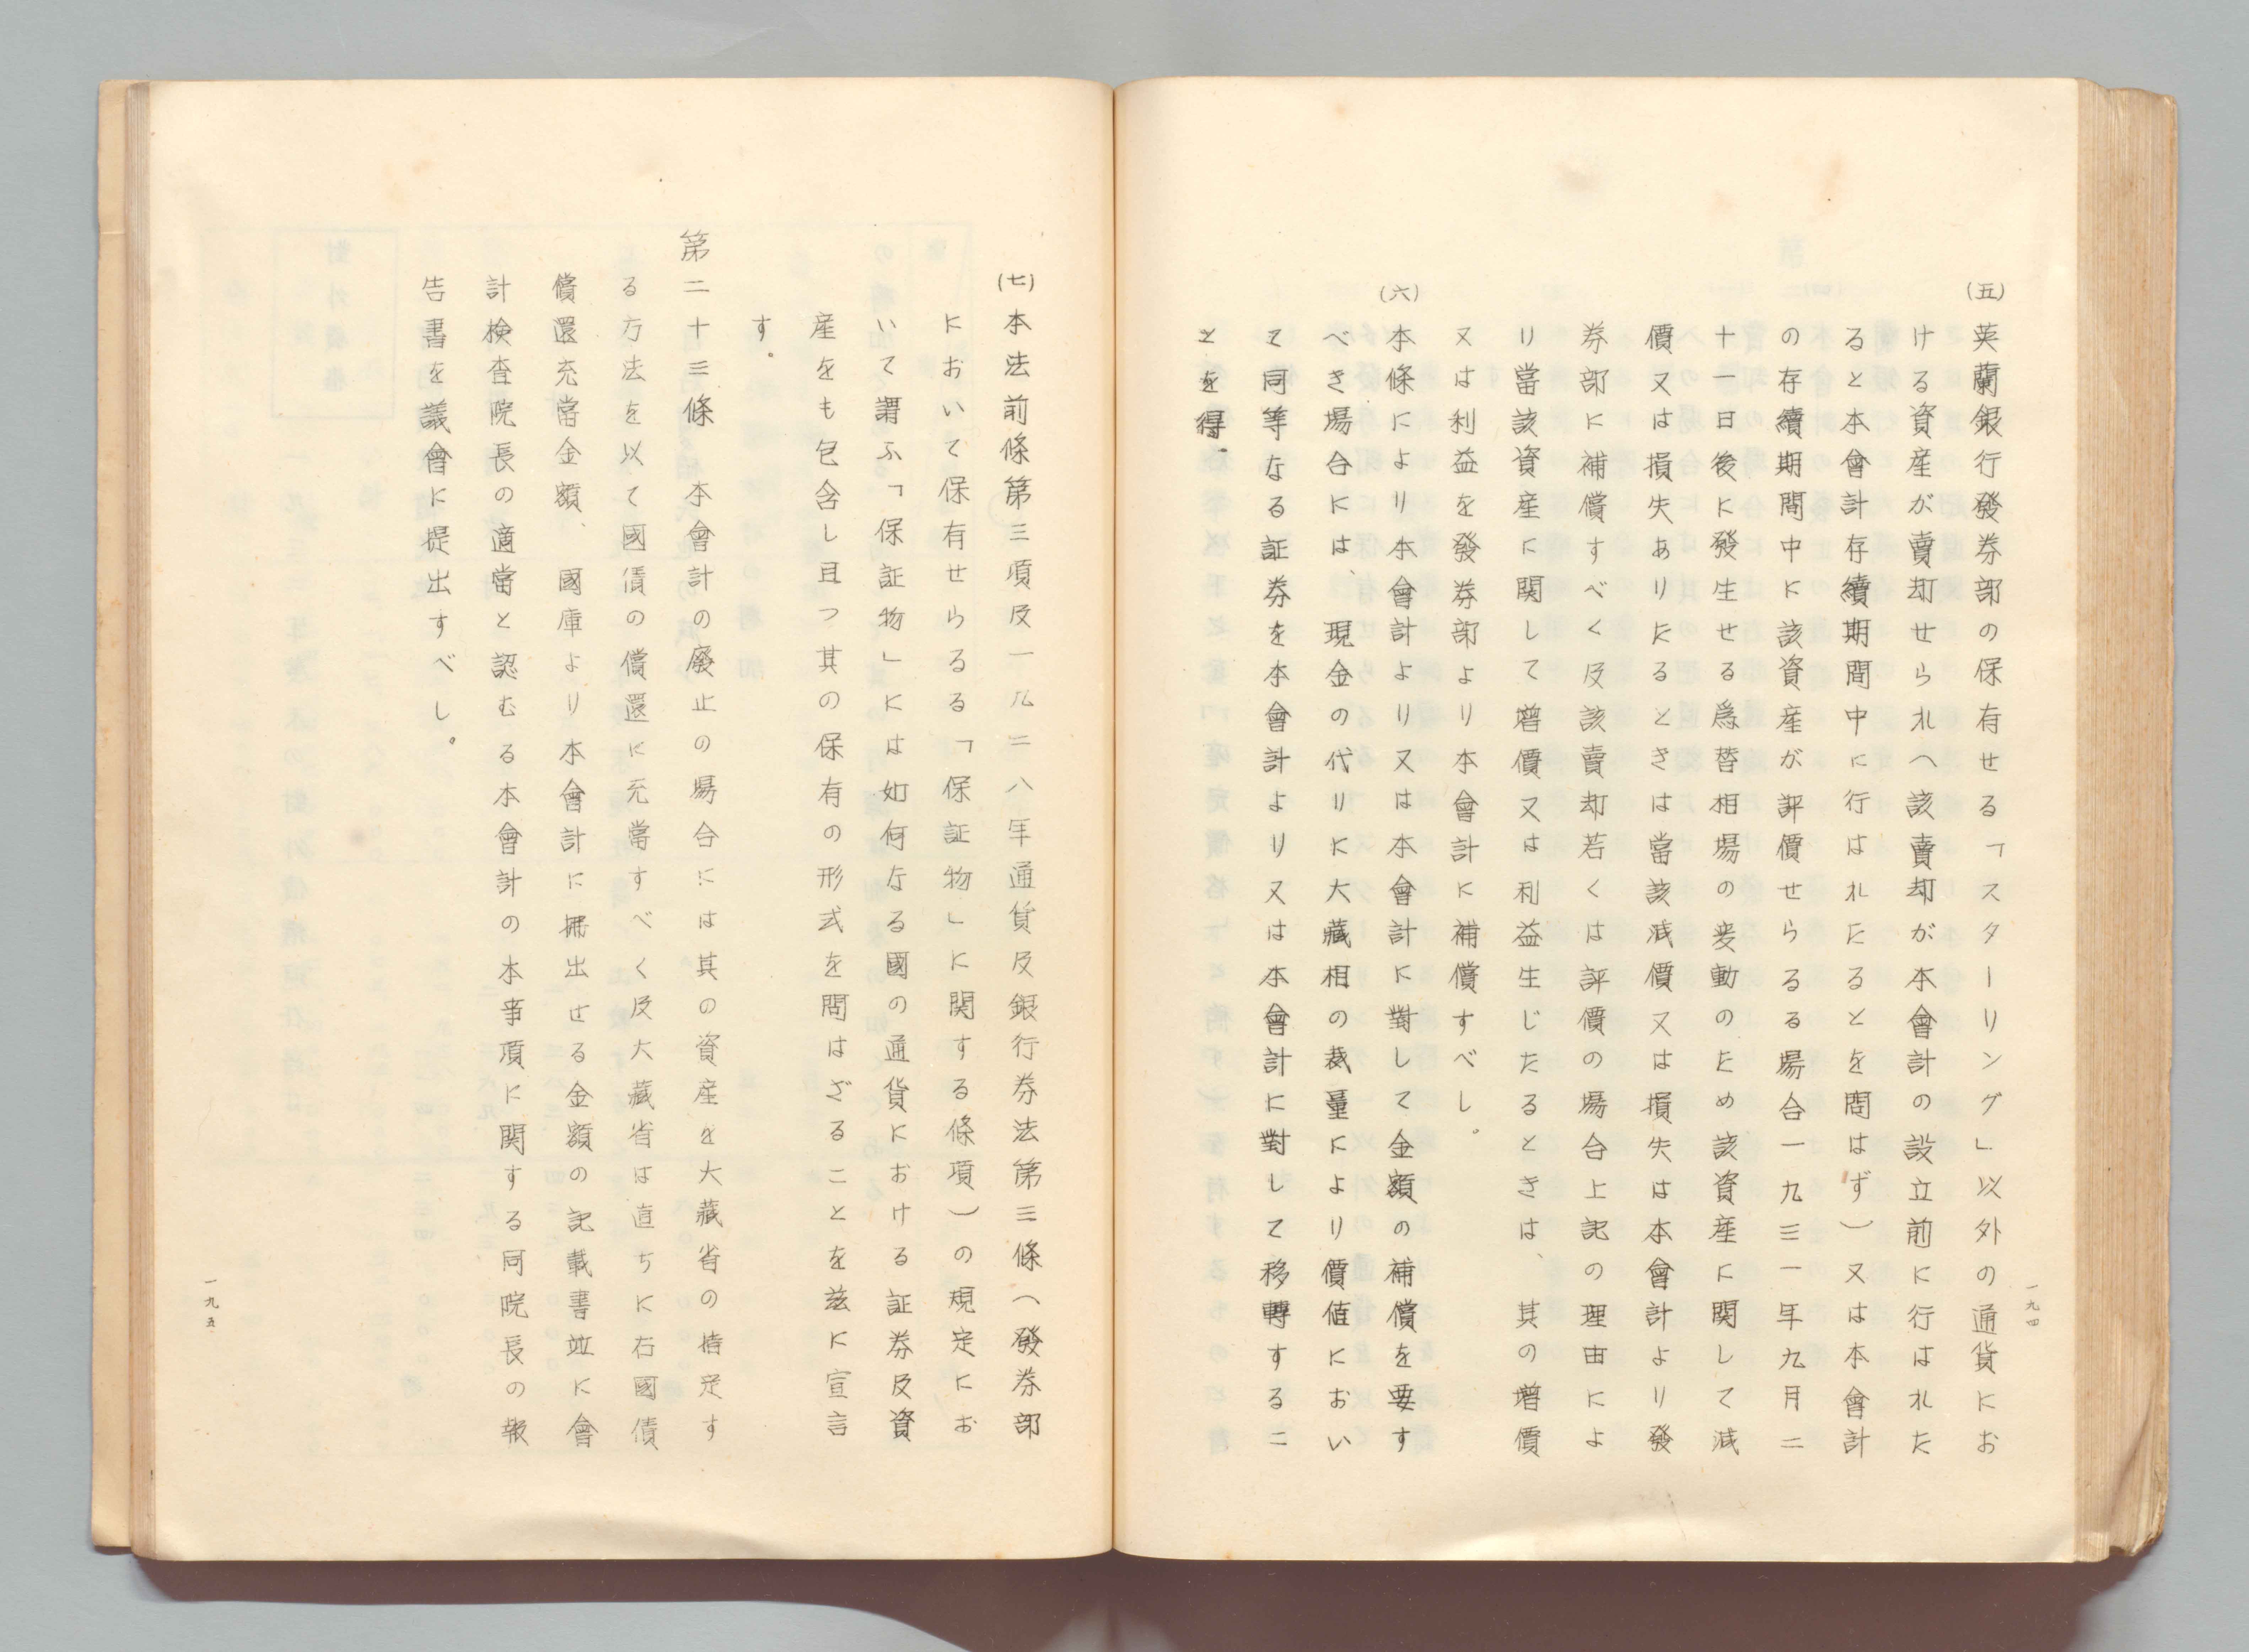 (五)
英蘭銀行發券部の保有せる「スターリング」以外の通貨にお
ける資産が賣却せられへ該賣却が本會計の設立前に行はれた
ると本會計存續期間中に行はれたるとを問はず)又は本會計
の存續期間中に該資産が評價せらるる場合一九三一年九月二
十一日後に發生せる爲替相場の変動のため該資産に関して減
價又は損失ありたるときは當該減價又は損失は本會計より發
券部に補償すべく反該賣却若くは評價の場合上記の理由によ
り當該資産に関して増價又は利益生じたるときは、其の増價
又は利益を發券部より本會計に補償すべし。
(六)
本條により本會計より又は本會計に對して金額の補償を要す
べき場合には、現金の代りに大藏相の裁量により價値におい
て同等なる証券を本會計より又は本會計に對して移轉するこ
とを得.
一九四
(七)本法前條第三項及一九二八年通貨及銀行券法第三條(發券部
において保有せらるる「保証物」に関する條項)の規定にお
いて謂ふ「保証物」には如何なる國の通貨における証券及資
産をも包含し且つ其の保有の形式を問はざることを茲に宣言
す。
第二十三條 本會計の廢止の場合には其の資産を大藏省の指定す
る方法を以て國債の償還に充當すべく及大藏省は直ちに右國債
償還充當金額、國庫より本會計に拂出せる金額の記載書並に會
計検査院長の適當と認むる本會計の本事項に関する同院長の報
告書を議會に提出すべし。
一九五